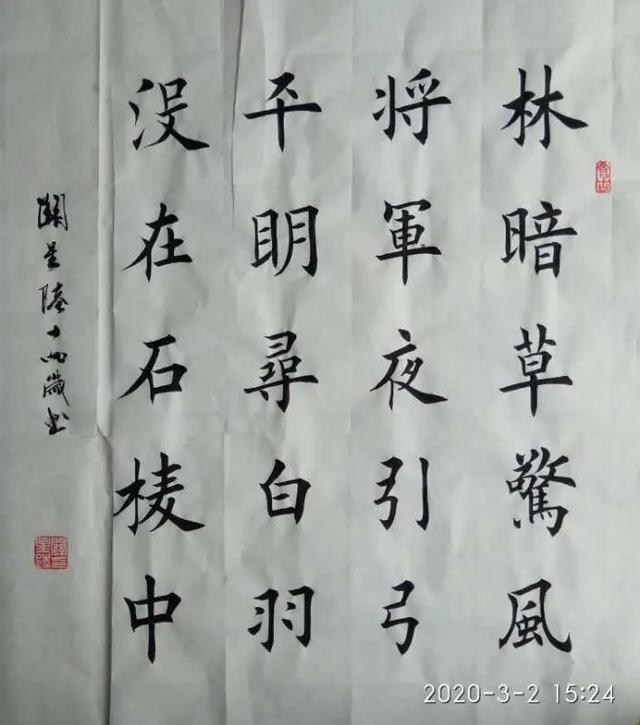 林暗草驚風
将軍夜引弓
平眀尋白羽
没在石棱中
陸十兩歲书
2020-3-2 15:24